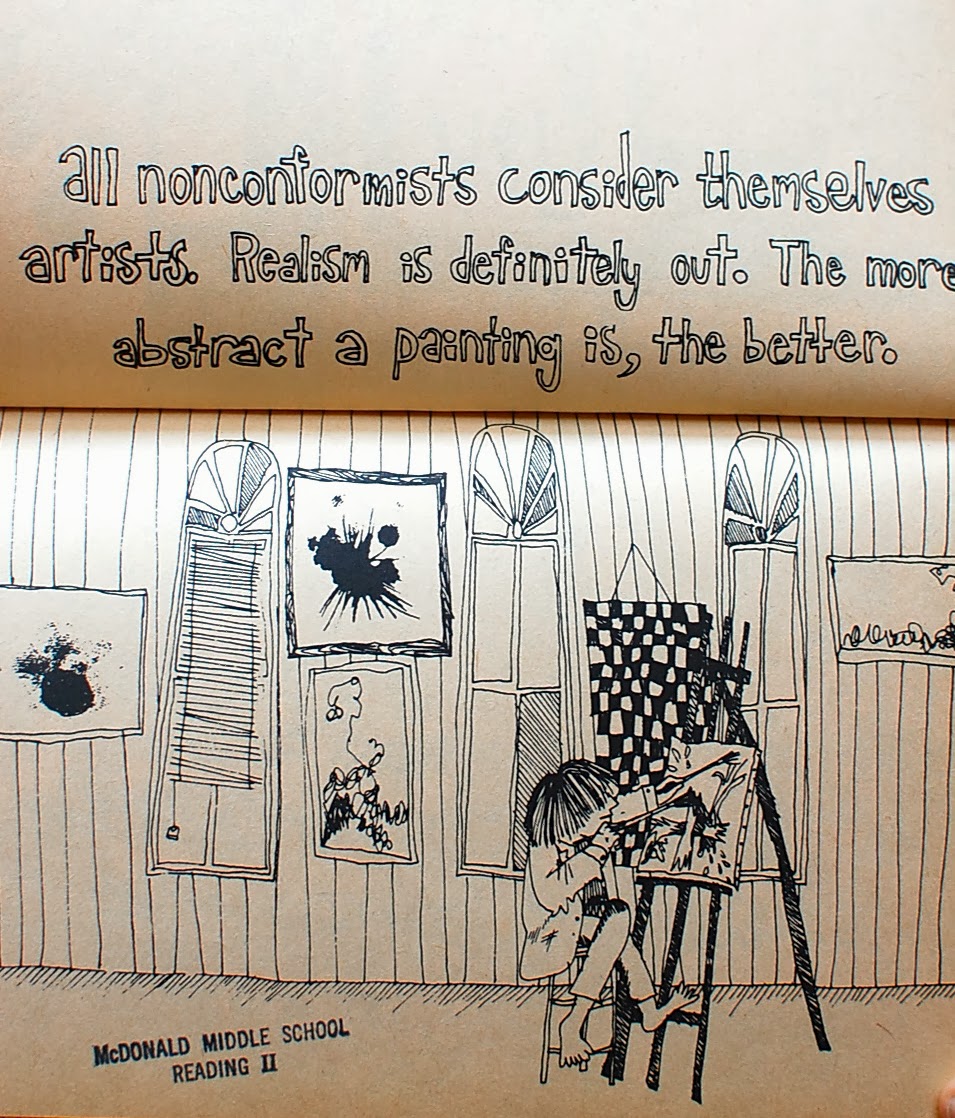 all nonconformists consider themselves
artists. Realism is definitely out. The more
abstract a painting is, the better.
McDONALD MIDDLE SCHOOL
READING II